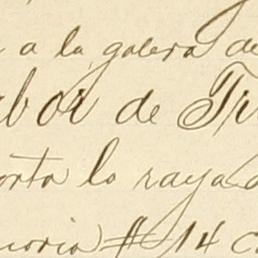 a la galera de
labor de Tr
orta la raya d
moria # 14 c